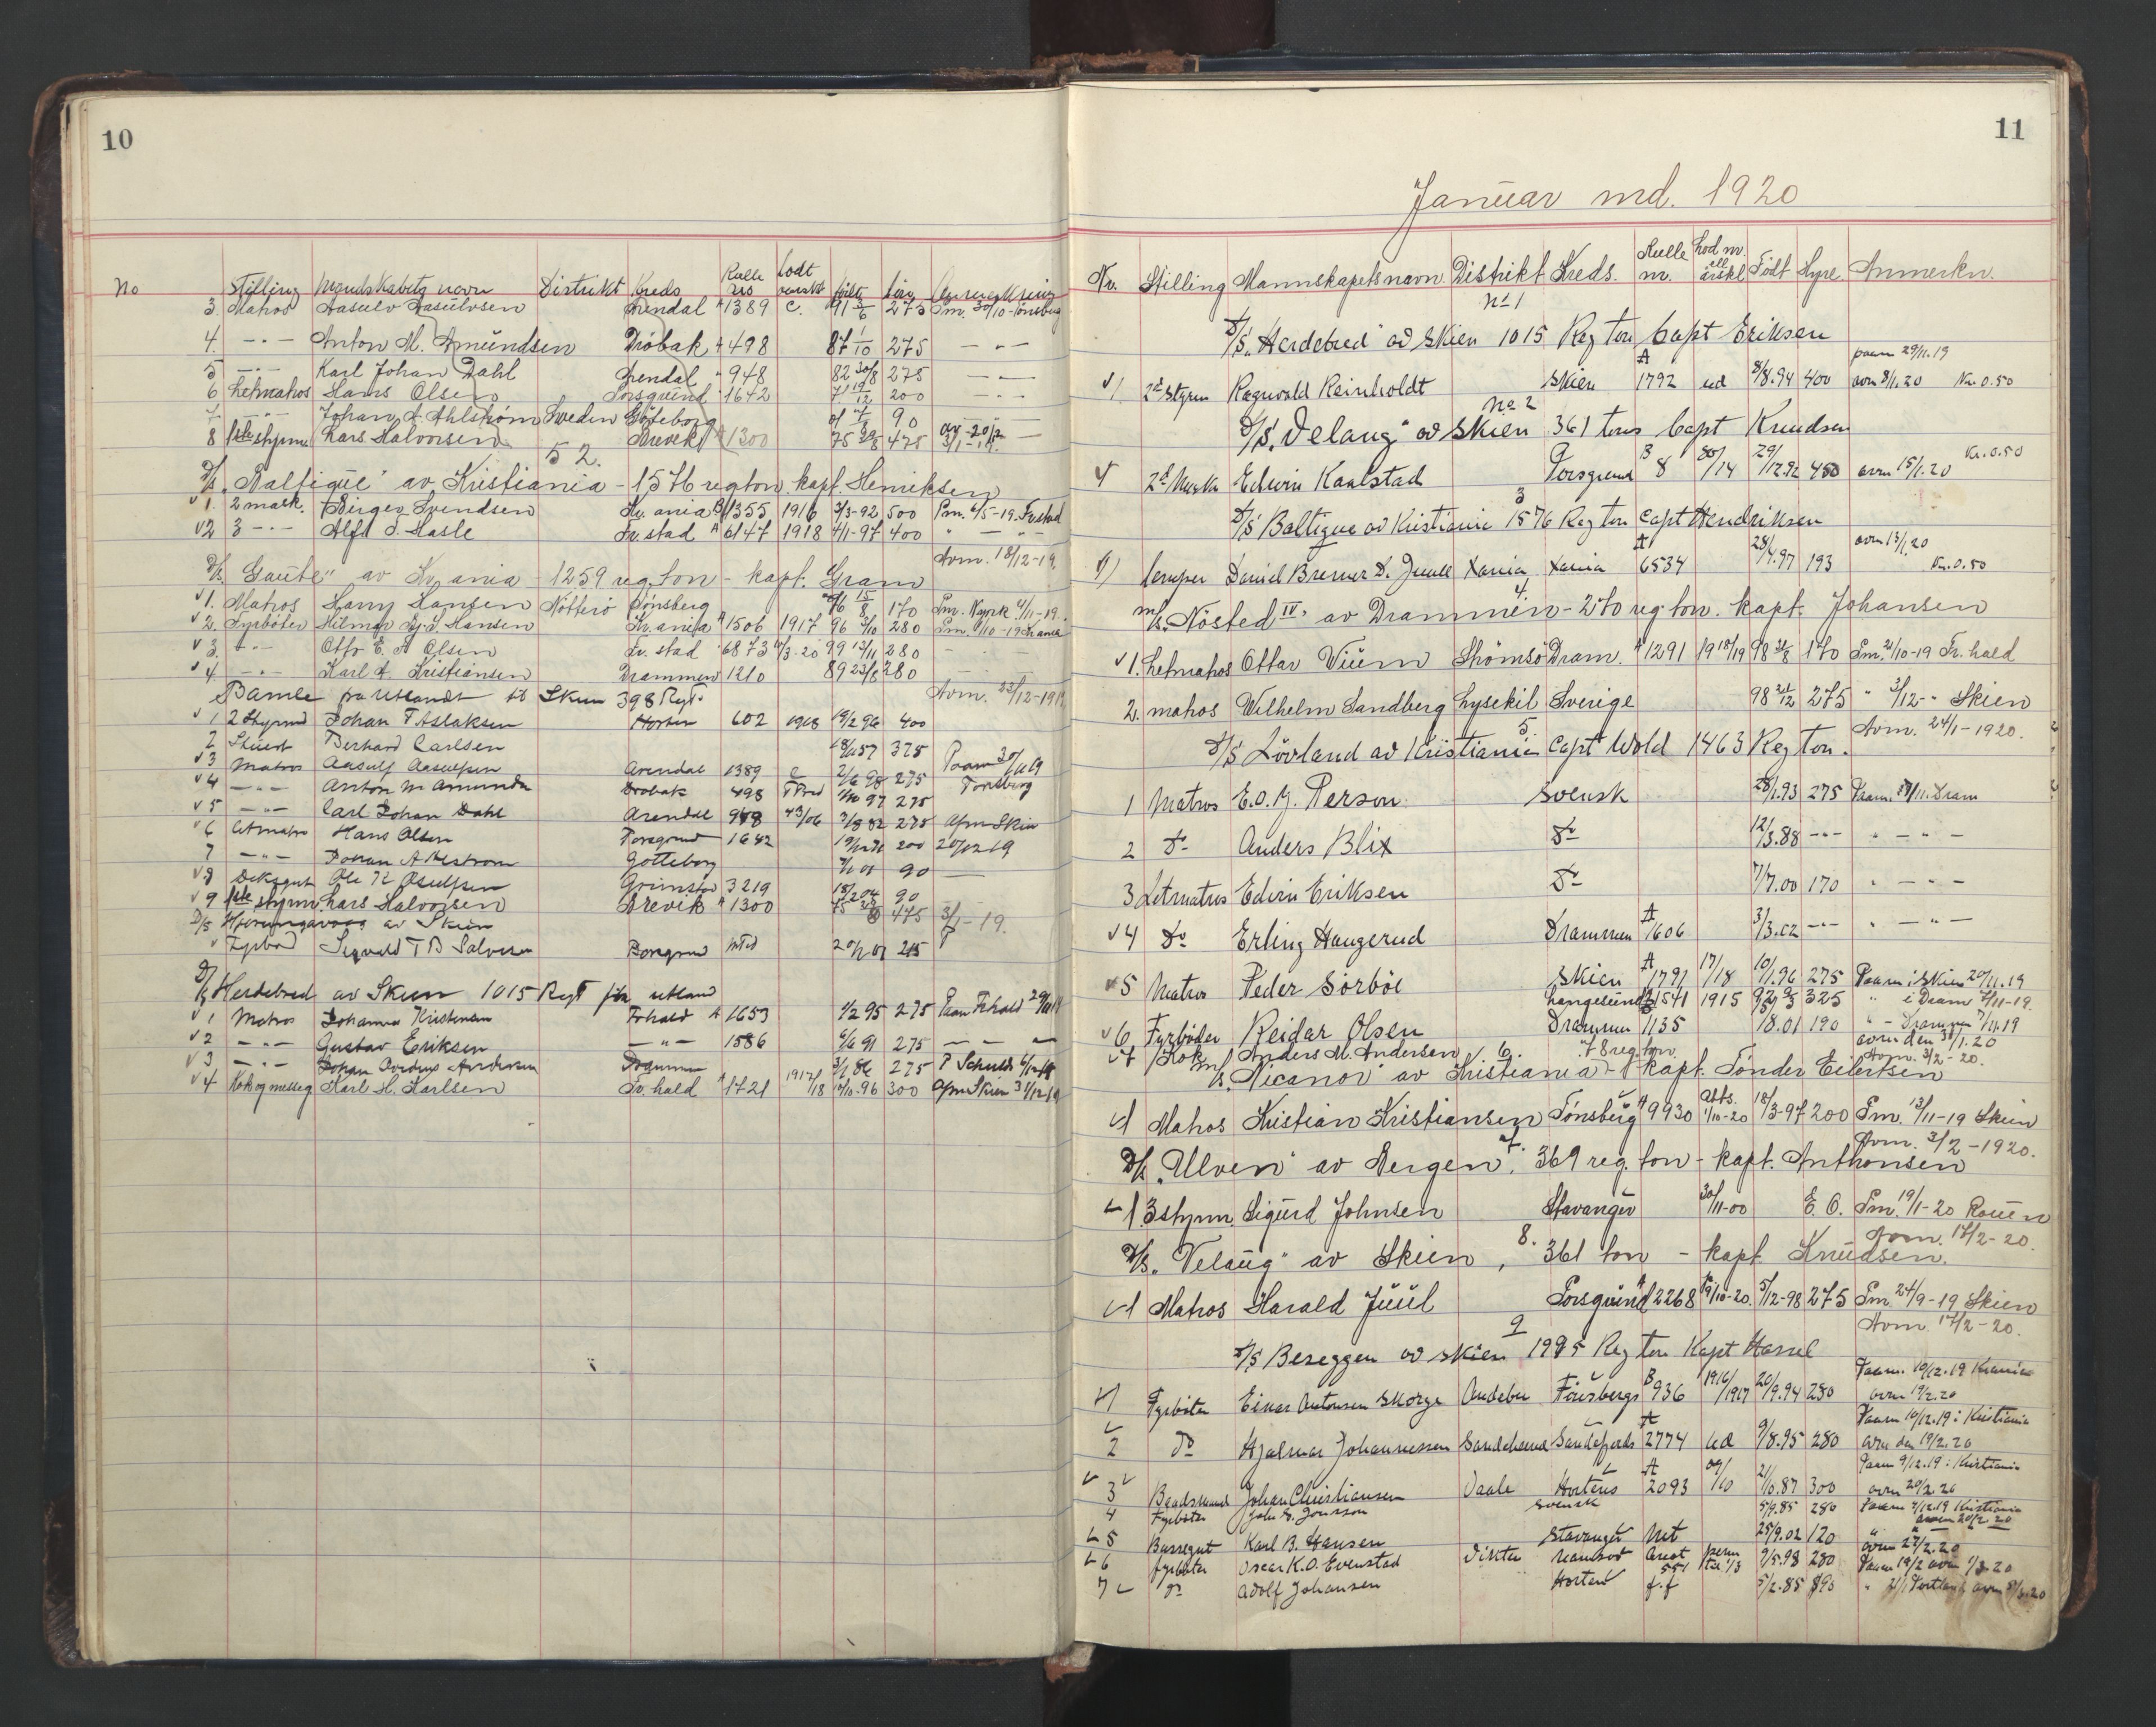 10
No Stilling Mandskabets navn Distrikt Kreds Rulle no Lodt Født Hyre Anmerkning
3. Matros Aasulv Aasulvsen Arendal A 1389 C. 91 2/6 275 Pm. 30/10- Tönsberg
4. -"- Anton M. Amündsen Dröbak A 498 87 1/10 275 -"-
5 -"- Karl Johan Dahl Arendal " 948 82 30/8 275 -"-
6 Letmatros Hans Olsen Porsgründ " 1642 71 19/12 200 -"-
7. -"- Johan A. Ahlström Sweden Göteborg 01 7/8 90 -"-
8 1ste styrm Lars Halvorsen Brevik A 1300 75 29/8 475 3/1-19.
52.
D/S. "Baltique" av Kristiania - 1576 regton. kapt. Henriksen
1. 2 mask. Birger Svendsen Kr.ania B 1355 1916 3/3-92 500 Pm. 6/5-19. Frstad
2 3 -"- Alf S. Hasle Fr.stad A 6147 1918 4/1-97 400 " - " -
Avm. 18/12-19.
D/S. "Gaute" av Kr.ania - 1259 reg. ton - kapt. Gram
1. Matros Harry Hansen Nötterö Tönsberg 96 15/8 170 Pm. Nyork 4/11-19.
2. Fyrböter Hilmar Hansen Kr.ania A 1506 1917 96 3/10 280 Pm.
3. -"- Otto E. A Olsen Fr. stad 6873 99 13/11 280 -
4 -"- Karl A. Kristiansen Drammen 1210 89 23/8 280 -
Avm. 23/12-1919
Bamle fra Utlandt til Skien 398 Rgt.
1 2 Styrmd Johan T Aslaksen Horten 602 1918 19/2 96 400
2 Stuert Berhard Carlsen 18/11 57 375
3 Matros Aasulf Aasulfsen Arendal 1389 C 2/6 98 275 Paam 30/10 19
4 -"- Anton M Amunds Drobak 498 1/10 97 275 Tonsberg
5 -"- Carl Johan Dahl Arendal 948 43/06 3/8 82 275 Afm Skien
6 Letmatro Hans Olsen Porsgrund 1642 19/12 71 200 20/12 19
7 -"- Johan A Alstrom Gotteborg 7/8 01 90 -
8 Deksgut Ole K Osulfsen Grimstad 3219 18/2 04 90
9 1ste styrm Lars Halvorsen Brevik A 1300 75 475 3/1-19.
D/S av Skien
Fyrbød Sigvald T B Salvesen Porsgrund 20/1 01 215
D/S Herdebred av Skien 1015 Regt fra utland
1 Matros Johannes Kristensen Frhald A 1653 1/2 95 275 Paam Frhald 29/11 19
2 -"- Gustav Eriksen -"- 1586 6/6 91 275 - - -
3 -"- Johan Andersen Drammen 3/1 86 275
4 Kok og messeg Karl H. Karlsen Fr. hald A 1721 1917/18 300 Afm Skien 31/12 19
11
Januar md. 1920
Nr. Stilling Mannskapets navn Distrikt Kreds. Rulle nr. Lod nr. ell ærskl Født Hyre Anmerkn.
No 1
D/S "Herdebred" av Skien 1015 Reg ton Capt Eriksen
paam 29/11.19
1. 2d Styrm Ragnvald Reinholdt Skien A 1792 ud 8/8.94 400 avm 8/1.20 Kr. 0.50
No 2
D/S "Velaug" av Skien 361 tons Capt Knudsen
Kr. 0.50
1 2d Mask Edwin Kaalstad Porsgrund B 8 80/14 29/12.92 450 avm 15/1.20
3
D/S Baltique av Kristiania 1576 Reg ton Capt Hendriksen
avm 13/1.20
1) Lemper Daniel Bremer D. Juell Xania Xania A 6534 28/4.97 193 Kr. 0.50
4.
M/S. "Nösted IV" av Drammen - 270 reg. ton. kapt. Johansen
1. Letmatros Ottar Viüm Strömsö Dram. A 1291 1918/19 98 31/8 170 Pm. 21/10-19 Fr. hald
2. matros Wilhelm Sandberg Lysekil Sverige 98 21/12 275 " 3/12-" Skien
5. Avm. 24/1-1920.
D/S Lövland av Kristiania Capt Wold 1463 Reg ton.
1 Matros E.O.J. Person Svensk 28/1.93 275 Paam. 18/11. Dram
2 Do Anders Blix Do 12/3.88 -"- " - " -
3 Letmatros Edvin Eriksen Do 7/7.00 170 " - " -
4 Do Erling Haugerud Drammen A 1606 3/3.02 -"- " - " -
5 Matros Peder Sörböe Skien A 1791 17/18 10/1.96 275 Paam i Skien 20/11.19
Langesünd 1541 1915 325 " i Dram 7/11-19.
6 Fyrbøder Reidar Olsen Drammen 1135 18.01 190 " - Drammen 7/11.19
avm den 30/1.20
7 Kok Anders M. Andersen 6. 78 reg ton Avm. 3/2-20.
M/S. "Nicanor" av Kristiania - kapt. Tönder Eilertsen
1 Matros Kristian Kristiansen Tönsberg A 9930 Uts. 1/10-20 18/3-97 200 Pm. 13/11-19 Skien
7. Avm. 3/2-1920.
D/S. "Ulven" av Bergen, 369 reg. ton - kapt. Anthonsen
1 3 styrm. Sigürd Johnsen Stavanger 30/11-00 E. O. Pm. 19/1-20 Roüen
8. Avm. 17/2-20.
D/S. "Velaüg" av Skien, 361 ton - kapt. Knüdsen.
1 Matros Harald Jüül Porsgründ A 2268 19/10-20. 5/12-98 275 Pm. 24/9-19 Skien
9 Avm. 17/2-20.
D/S Beseggen av Skien 1995 Reg ton Kapt Hassel
Paam. 10/12.19 Krania
1 Fyrbøter Einar Antonsen Skorge Andebu Tönsbergs B 936 1916/1917 20/9.94 280 avm 19/2.20
Paam 10/12.19 i Kristiania
2 Do Hjalmar Johannessen Sandeherred Sandefjords A 2774 ud 9/8.95 280 avm den 19/2.20
Paam 9/12.19 i Kristiania
3 Baadsmand Johan Christiansen Vaale Hortens A 2093 09/10 21/10.87 300 avm 20/2.20
4 Fyrbøter John E. Jonsson Svensk 5/9.85 280 Paam 9/12.19 Kristiania
avm 20/2.20
5 Byssegut Karl B. Hansen Stavanger Int 25/9.02 120 avm 27/2.20
6 fyrbøter Oscar K.O. Evenstad Vikten Namsos 9/5.98 280 Paam 19/2 avm 1/3.20
7 Do Adolf Johansen Horten f.f 5/2.85